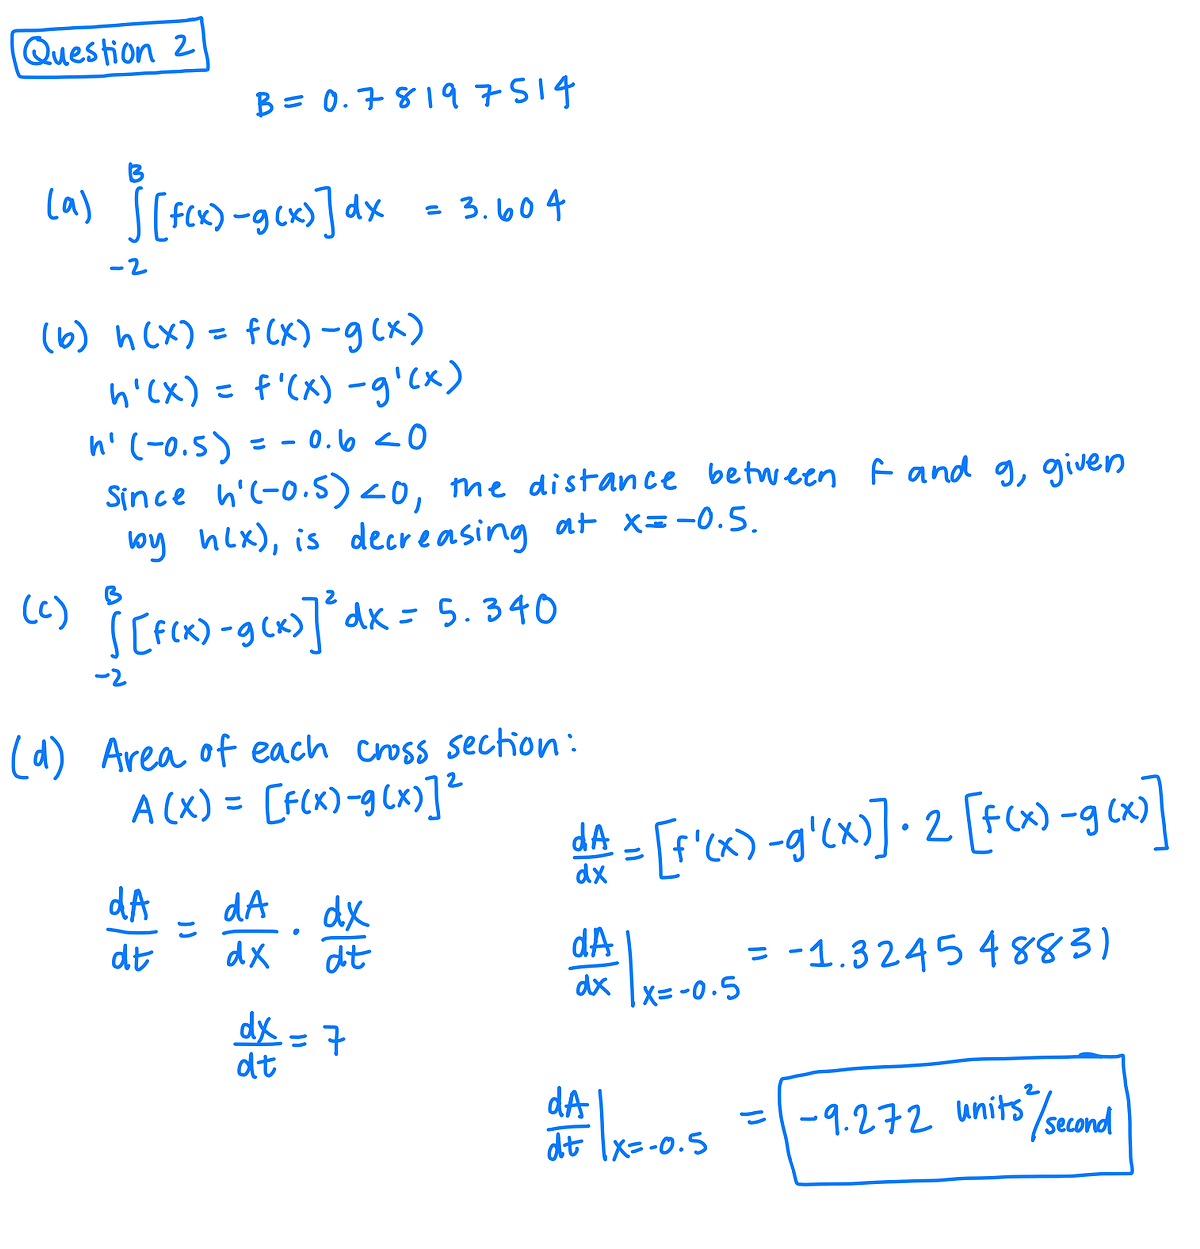 Question 2
B = 0.781975 14
(a) ∫_{-2}^{B} [f(x) - g(x)] dx = 3.604
(b) h(x) = f(x) - g(x)
h'(x) = f'(x) - g'(x)
h'(-0.5) = -0.6 < 0
Since h'(-0.5) < 0, the distance between f and g, given
by h(x), is decreasing at x = -0.5.
(c) ∫_{-2}^{B} [f(x) - g(x)]² dx = 5.340
(d) Area of each cross section:
A(x) = [f(x) - g(x)]²
dA/dt = dA/dx · dx/dt
dx/dt = 7
dA/dx = [f'(x) - g'(x)] · 2 [f(x) - g(x)]
dA/dx |_{x=-0.5} = -1.324548831
dA/dt |_{x=-0.5} = -9.272 units²/second